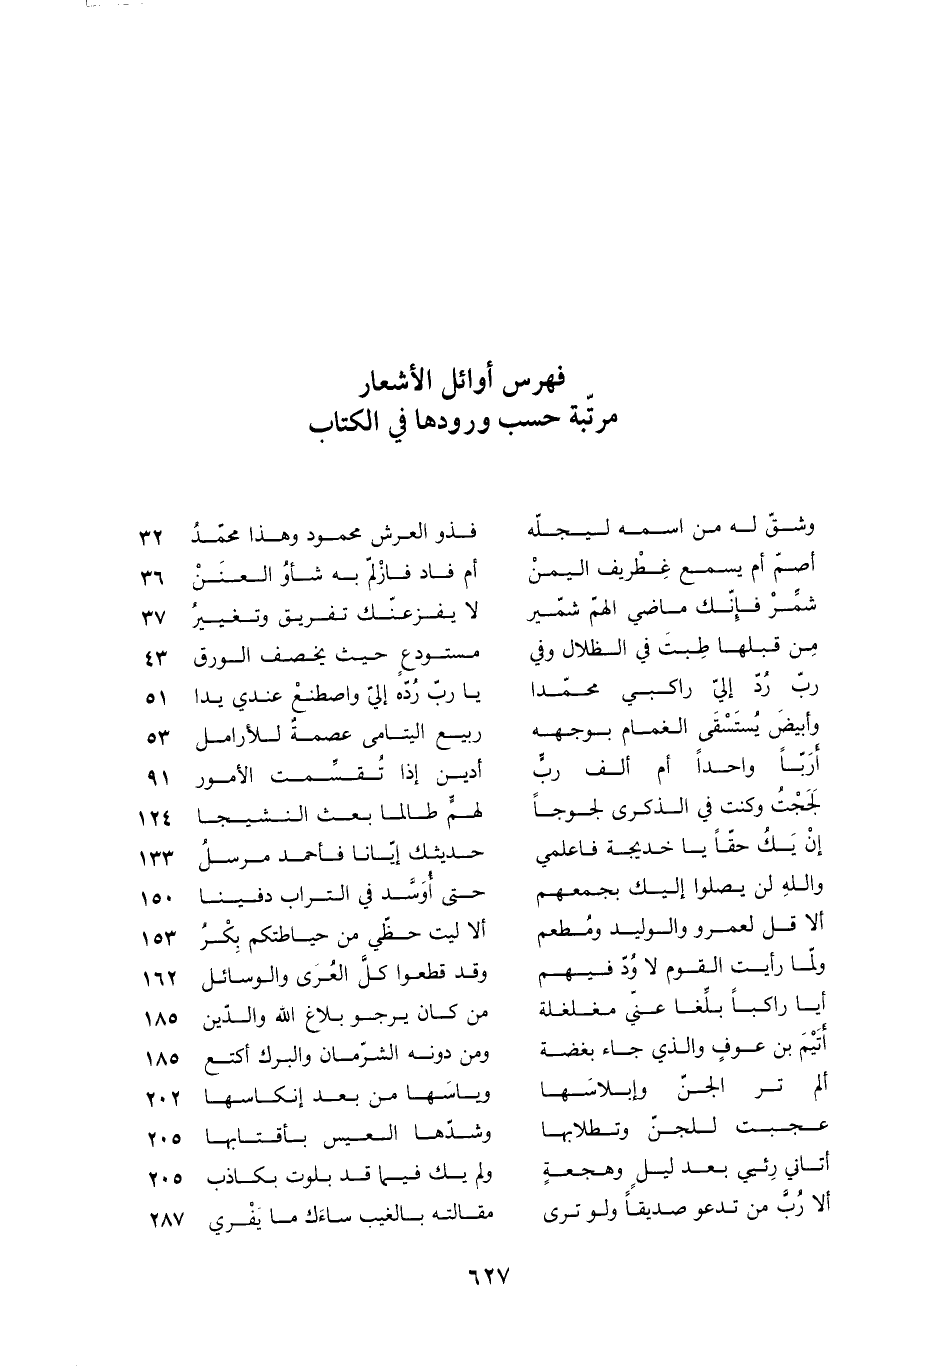 فهرس أوائل الأشعار
مرتّبة حسب ورودها في الكتاب
وشقّ له من اسمه ليجلّه فذو العرش محمود وهذا محمّدُ ٣٢
أصمّ أم يسمع غطريف اليمنْ أم فاد فازلمّ به شأوُ العننْ ٣٦
شمّرْ فإنّك ماضي الهمّ شمّير لا يفزعنّك تفريق وتغييرُ ٣٧
من قبلها طبتَ في الظلال وفي مستودعٍ حيث يخصف الورق ٤٣
ربّ رُدّ إليّ راكبي محمّدا يا ربّ رُدّه إليّ واصطنعْ عندي يدا ٥١
وأبيضَ يُستَسْقى الغمام بوجهه ربيع اليتامى عصمةً للأرامل ٥٣
أربّاً واحداً أم ألف ربٍّ أدين إذا تُقسّمت الأمور ٩١
لججْتُ وكنت في الذكرى لجوجاً لهمٍّ طالما بعث النشيجا ١٢٤
إنْ يَكُ حقّاً يا خديجة فاعلمي حديثك إيّانا فأحمد مرسلُ ١٣٣
والله لن يصلوا إليك بجمعهم حتى أُوسّد في التراب دفينا ١٥٠
ألا قل لعمرو والوليد ومُطعم ألا ليت حظّي من حياطتكم بكْرُ ١٥٣
ولمّا رأيت القوم لا وُدّ فيهم وقد قطعوا كلّ العُرَى والوسائل ١٦٢
أيا راكباً بلغا عنّي مغلغلة من كان يرجو بلاغ الله والدّين ١٨٥
أتَيْمَ بن عوفٍ والذي جاء بغضة ومن دونه الشرْمان والبرك أكتع ١٨٥
ألم تر الجنّ وإبلاسَها ويأسَها من بعد إنكاسها ٢٠٢
عجبت للجنّ وتطلابها وشدّها العيس بأقتابها ٢٠٥
أتاني رئيي بعد ليلٍ وهجعةٍ ولم يك فيما قد بلوت بكاذب ٢٠٥
ألا رُبَّ من تدعو صديقاً ولو ترى مقالته بالغيب ساءك ما يفْري ٢٨٧
٦٢٧